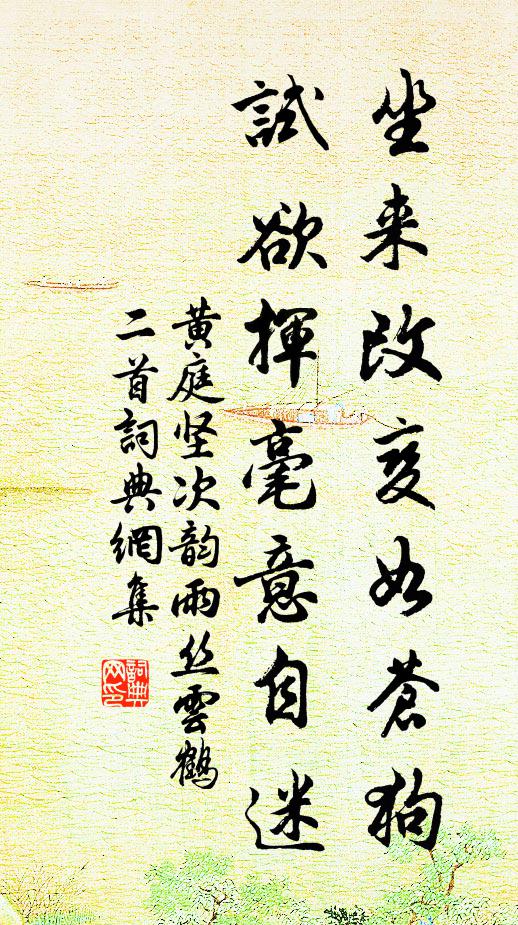 坐来改变如苍狗
試欲揮毫意自迷
黄庭坚次韵雨丝雲鶴
二首詞典網集
詞典网印